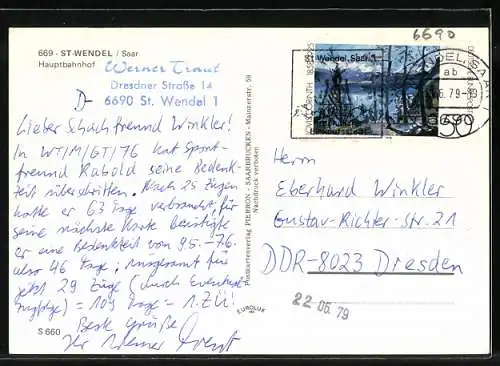 6690
669 - ST-WENDEL / Saar
Hauptbahnhof
Werner Traut
Dresdner Straße 14
D- 6690 St. Wendel 1
Lieber Schachfreund Winkler!
In WT/M/GT/76 hat Sport-
freund Rabold seine Bedenk-
zeit überschritten. Nach 25 Zügen
hatte er 63 Tage verbraucht, für
seine nächste Karte benötigte
er eine Bedenkzeit von
also 46 Tage, insgesamt für
jetzt 29 Züge (durch
= 109 Tage = 1. ZÜ!
Beste Grüße,
Ihr Werner Traut
S 660
Postkartenverlag PERRON - SAARBRÜCKEN - Mainzerstr. 59
Nachdruck verboten
EUROLUX
St. Wendel, Saar 1
ab
6. 79 - 19
6690
50
Herrn
Eberhard Winkler
Gustav-Richter-Str. 21
DDR-8023 Dresden
22 06. 79